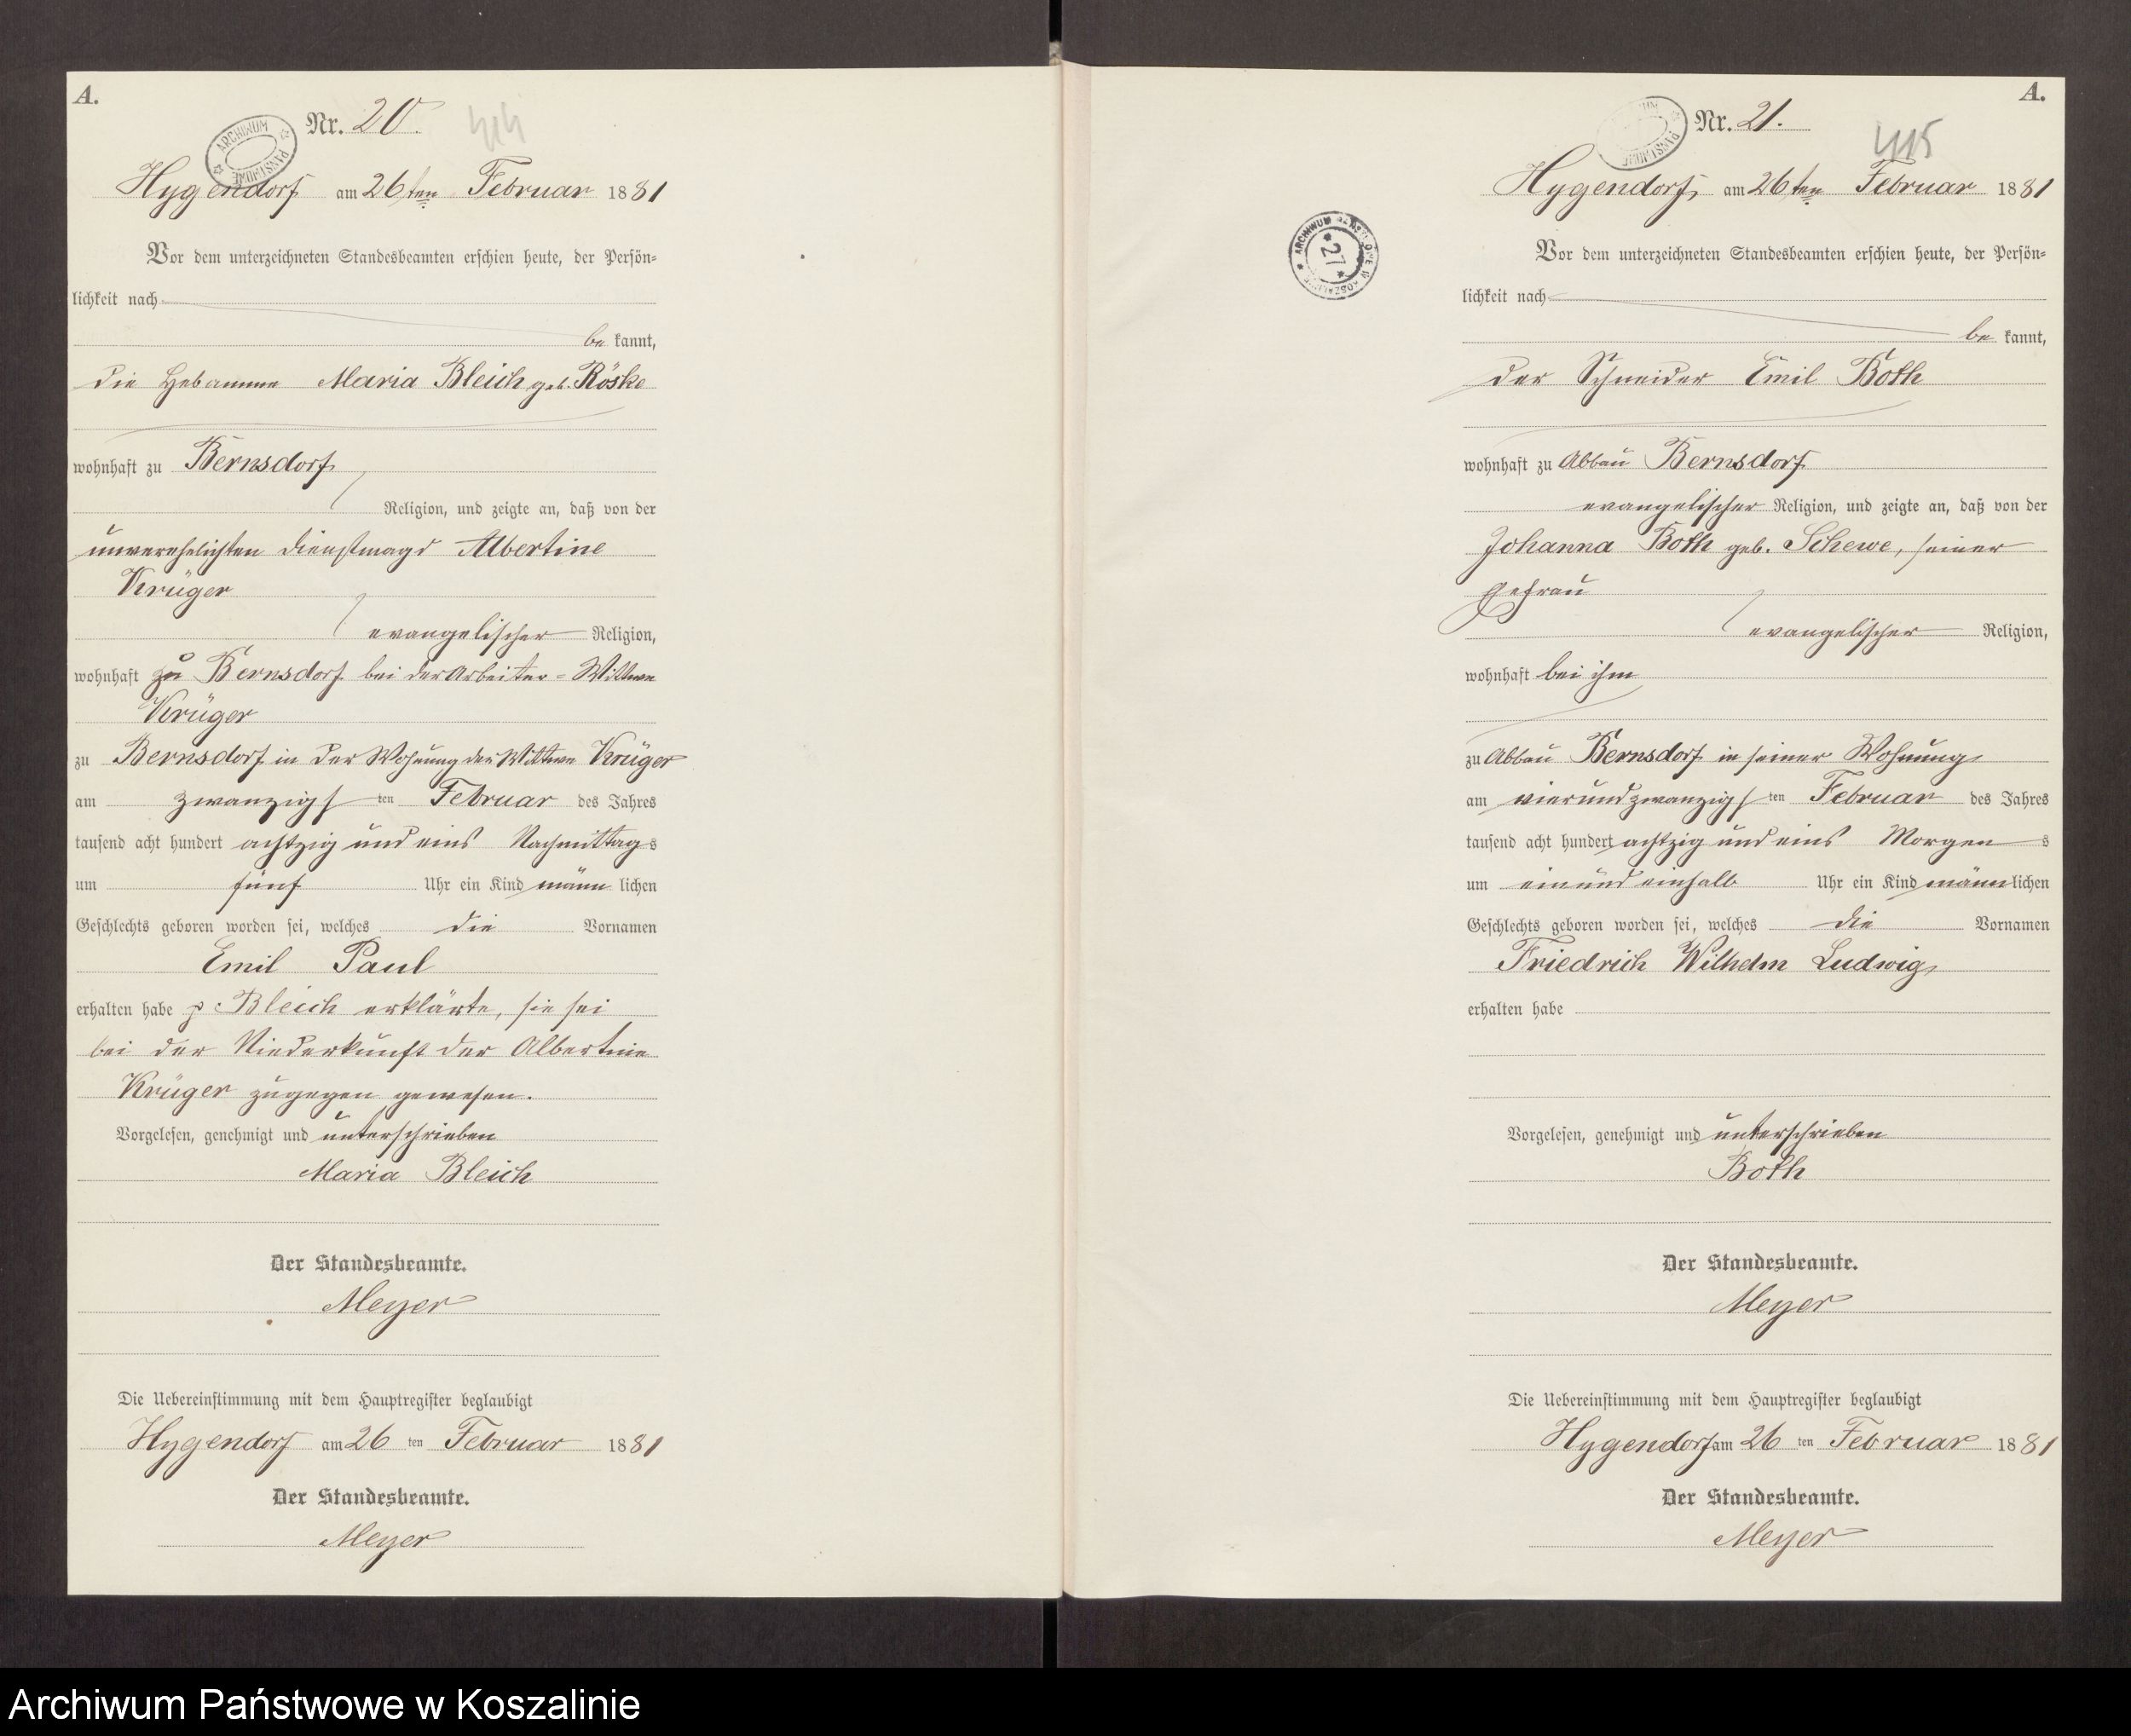 A.
Nr. 20.
ARCHIWUM PAŃSTWOWE
Hygendorf am 26ten Februar 1881
Vor dem unterzeichneten Standesbeamten erschien heute, der Persön-
lichkeit nach
be kannt,
die Hebamme Maria Bleich geb. Röske
wohnhaft zu Bernsdorf
Religion, und zeigte an, daß von der
unverehelichten Dienstmagd Albertine
Krüger
evangelischer Religion,
wohnhaft zu Bernsdorf bei der Arbeiter-Wittwe
Krüger
zu Bernsdorf in der Wohnung der Wittwe Krüger
am zwanzigs ten Februar des Jahres
tausend acht hundert achtzig und eins Nachmittags
um fünf Uhr ein Kind männ lichen
Geschlechts geboren worden sei, welches die Vornamen
Emil Paul
erhalten habe p Bleich erklärte, sie sei
bei der Niederkunft der Albertine
Krüger zugegen gewesen.
Vorgelesen, genehmigt und unterschrieben
Maria Bleich
Der Standesbeamte.
Meyer
Die Uebereinstimmung mit dem Hauptregister beglaubigt
Hygendorf am 26 ten Februar 1881
Der Standesbeamte.
Meyer
A.
Nr. 21.
415
Hygendorf, am 26ten Februar 1881
ARCHIWUM PAŃSTWOWE W KOSZALINIE
* 27 *
Vor dem unterzeichneten Standesbeamten erschien heute, der Persön-
lichkeit nach
be kannt,
der Schneider Emil Both
wohnhaft zu Abbau Bernsdorf
evangelischer Religion, und zeigte an, daß von der
Johanna Both geb. Schewe, seiner
Ehefrau
evangelischer Religion,
wohnhaft bei ihm
zu Abbau Bernsdorf in seiner Wohnung
am vierundzwanzigs ten Februar des Jahres
tausend acht hundert achtzig und eins Morgen s
um ein und einhalb Uhr ein Kind männlichen
Geschlechts geboren worden sei, welches die Vornamen
Friedrich Wilhelm Ludwig
erhalten habe
Vorgelesen, genehmigt und unterschrieben
Both
Der Standesbeamte.
Meyer
Die Uebereinstimmung mit dem Hauptregister beglaubigt
Hygendorf am 26 ten Februar 1881
Der Standesbeamte.
Meyer
Archiwum Państwowe w Koszalinie